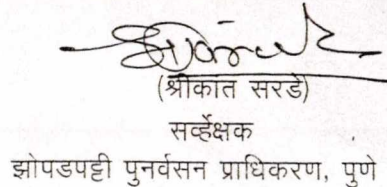 (श्रीकांत सरडे)
सर्व्हेक्षक
झोपडपट्टी पुनर्वसन प्राधिकरण, पुणे